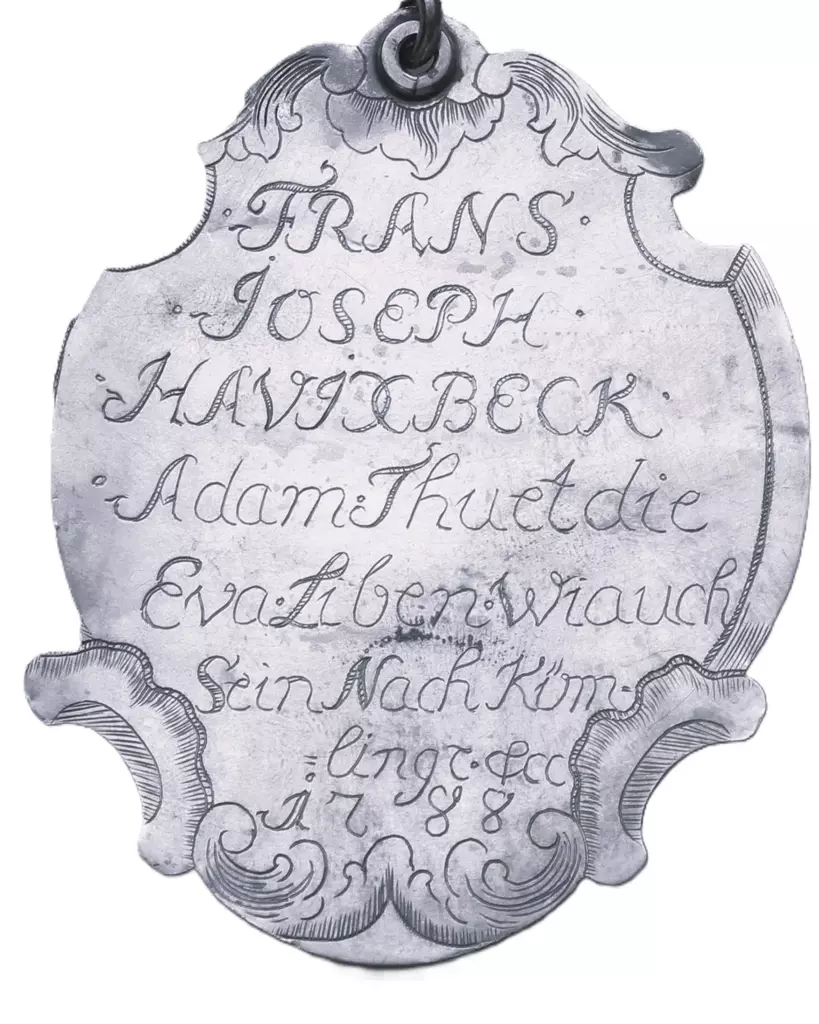 · FRANS ·
· JOSEPH ·
· HAVIXBECK ·
· Adam : Thuet die
Eva : Liben : wi auch
Sein Nach Küm=
=lingr · &cc
1788